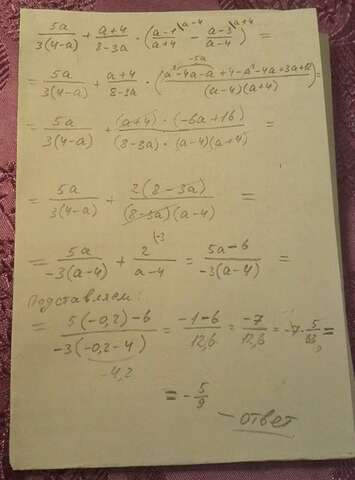 5a/3(4-a) + a+4/8-3a · (a-1\a-4/a+4 - a-3\a+4/a-4) =
= 5a/3(4-a) + a+4/8-3a · (a²-4a-a+4-a²-4a+3a+12/(a-4)(a+4)) =
-5a
= 5a/3(4-a) + (a+4)·(-6a+16)/(8-3a)·(a-4)(a+4) =
= 5a/3(4-a) + 2(8-3a)/(8-3a)(a-4) =
= 5a/-3(a-4) + 2\-3/a-4 = 5a-6/-3(a-4) =
Подставляем:
= 5(-0,2)-6/-3(-0,2-4) = -1-6/12,6 = -7/12,6 = -7·5/63 =
-4,2
= -5/9
- ответ